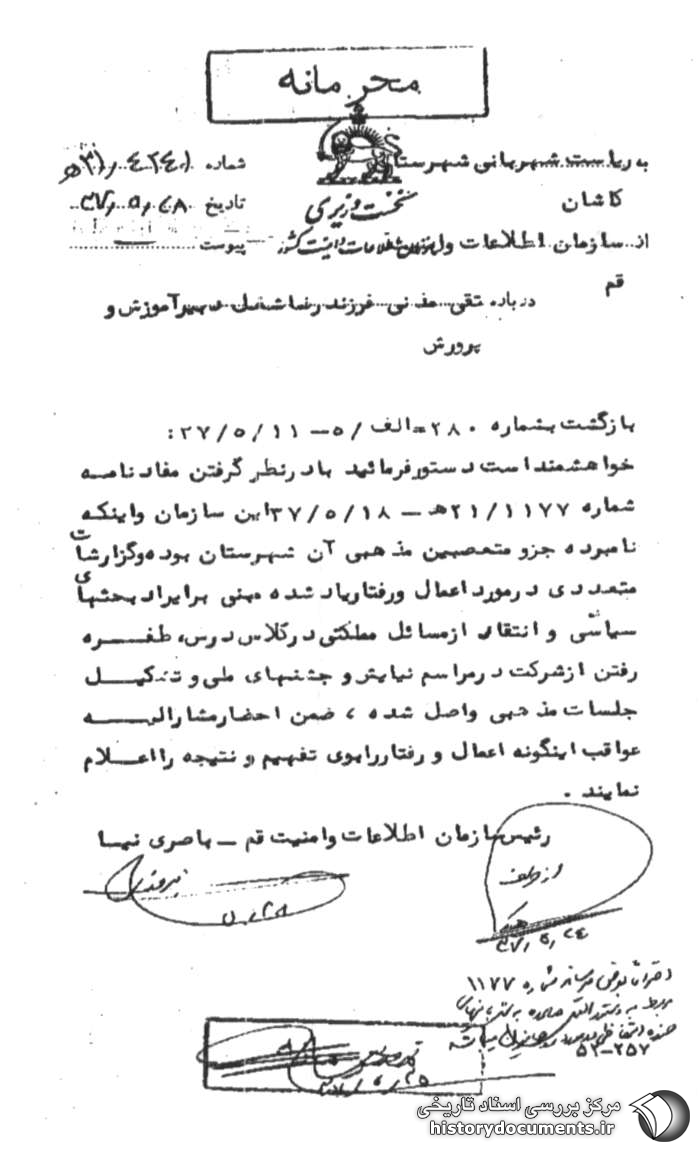 محرمانه
به ریاست شهربانی شهرستان
کاشان
شماره ۴۲۴۰/ ۳۱هـ
تاریخ ۳۷/۵/۲۸
نخست وزیری
از سازمان اطلاعات و امنیت کشور
پیوست
قم
درباره تقی مدنی فرزند رضا شغل دبیر آموزش و
پرورش
بازگشت بشماره ۲۸۰=الف/۵ـ ۳۷/۵/۱۱:
خواهشمند است دستور فرمائید با در نظر گرفتن مفاد نامه
شماره ۲۱/۱۱۷۷هـ ـ ۳۷/۵/۱۸ این سازمان و اینکه
نامبرده جزو متعصبین مذهبی آن شهرستان بوده و گزارشات
متعددی در مورد اعمال و رفتار یاد شده مبنی بر ایراد بحثهای
سیاسی و انتقاد از مسائل مملکتی در کلاس درس، طفره
رفتن از شرکت در مراسم نیایش و جشنهای ملی و تشکیل
جلسات مذهبی واصل شده ، ضمن احضار مشارالیه
عواقب اینگونه اعمال و رفتار را بوی تفهیم و نتیجه را اعلام
نمایند .
رئیس سازمان اطلاعات و امنیت قم ـ باصری نیا
از طرف
۳۷/۵/۲۴
۵/۲۸
شماره ۱۱۷۷
۵۲-۲۵۷
محرمانه
مرکز بررسی اسناد تاریخی
historydocuments.ir